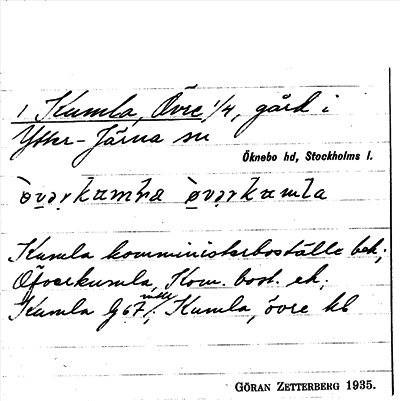 1 Kumla, Övre 1/4, gård i
Ytter-Järna sn
Öknebo hd, Stockholms l.
òvərkumla òvərkumla
Kumla komministerboställe bek;
Öfverkumla, Kom. bost. ek;
Kumla G67; Kumla, övre kb
GÖRAN ZETTERBERG 1935.